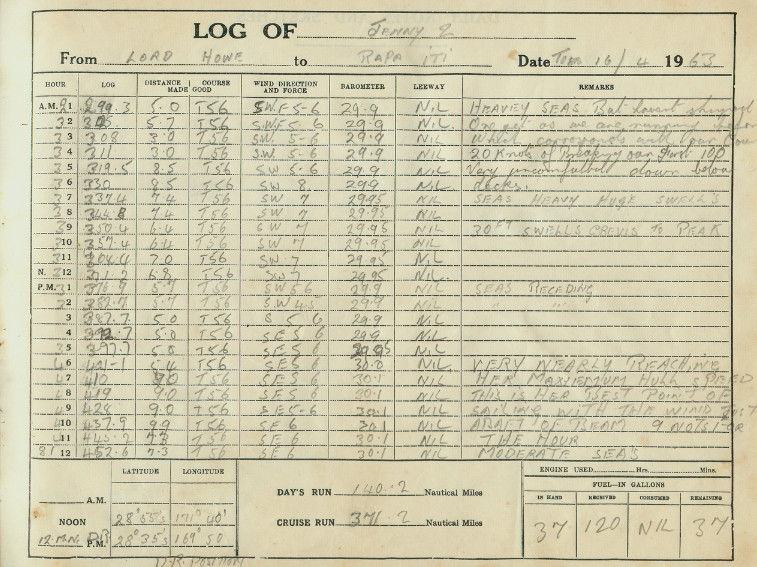 LOG OF Jenny 2
From LORD HOWE to RAPA ITI Date Tues 16/4 1963
HOUR LOG DISTANCE MADE GOOD COURSE WIND DIRECTION AND FORCE BAROMETER LEEWAY REMARKS
A.M. 1 299.3 5.0 T56 S.W.F 5-6 29.9 NiL HEAVEY SEAS But havent
2 5.7 T56 SWF5-6 29.9 NiL One yet as we are running
3 308 3.0 T56 S.W. 5-6 29.9 NiL Which corresponds and
4 311 3.0 T56 S.W. 5-6 29.9 NiL 20 Knots of
5 319.5 8.5 T56 SW 5-6 29.9 NiL Very uncomfortable down below
6 330 8.5 T56 SW 8 29.9 NiL decks.
7 337.4 7.4 T56 SW 7 29.95 NiL SEAS HEAVY HUGE SWELLS
8 344.8 7.4 T56 SW 7 29.95 NiL
9 350.4 6.4 T56 SW 7 29.95 NiL 20FT SWELLS CREVIS TO PEAK
10 357.4 6.4 T56 SW 7 29.95 NiL
11 364.4 7.0 T56 SW.7 29.95 NiL
N. 12 371.2 6.8 T56 SW7 29.95 NiL
P.M. 1 376.9 5.7 T56 SW 5 6 29.9 NiL SEAS RECEDING
2 382.7 5.7 T56 S.W 4 5 29.9 NiL " "
3 387.7 5.0 T56 S 5 6 29.9 NiL
4 392.7 5.0 T56 SE S 6 29.9 NiL
5 397.7 5.0 T56 SE S 6 29.95 NiL
6 401.1 5.4 T56 SE S 6 30.0 NiL VERY NEARLY REACHING
7 410 9.0 T56 SE S 6 30.1 NiL HER MAXIEMUM HULL SPEED
8 419 9.0 T56 SE S 6 30.1 NiL THIS IS HER BEST POINT OF
9 428 9.0 T56 SE 5-6 30.1 NiL SAILING WITH THE WIND JUST
10 437.9 9.9 T56 SE 6 30.1 NiL ABAFT OF BEAM 9 NOTS FOR
11 445.2 7.3 T56 SE 6 30.1 NiL THE HOUR
12 452.6 7.3 T56 SE 6 30.1 NiL MODERATE SEAS
LATITUDE LONGITUDE
A.M.
NOON 28°55's 171° 40'
12 M.N. DR P.M. 28°35's 169° 50
D.R. POSITION
DAY'S RUN 140.2 Nautical Miles
CRUISE RUN 371.2 Nautical Miles
ENGINE USED Hrs. Mins.
FUEL—IN GALLONS
IN HAND RECEIVED CONSUMED REMAINING
37 120 NIL 37